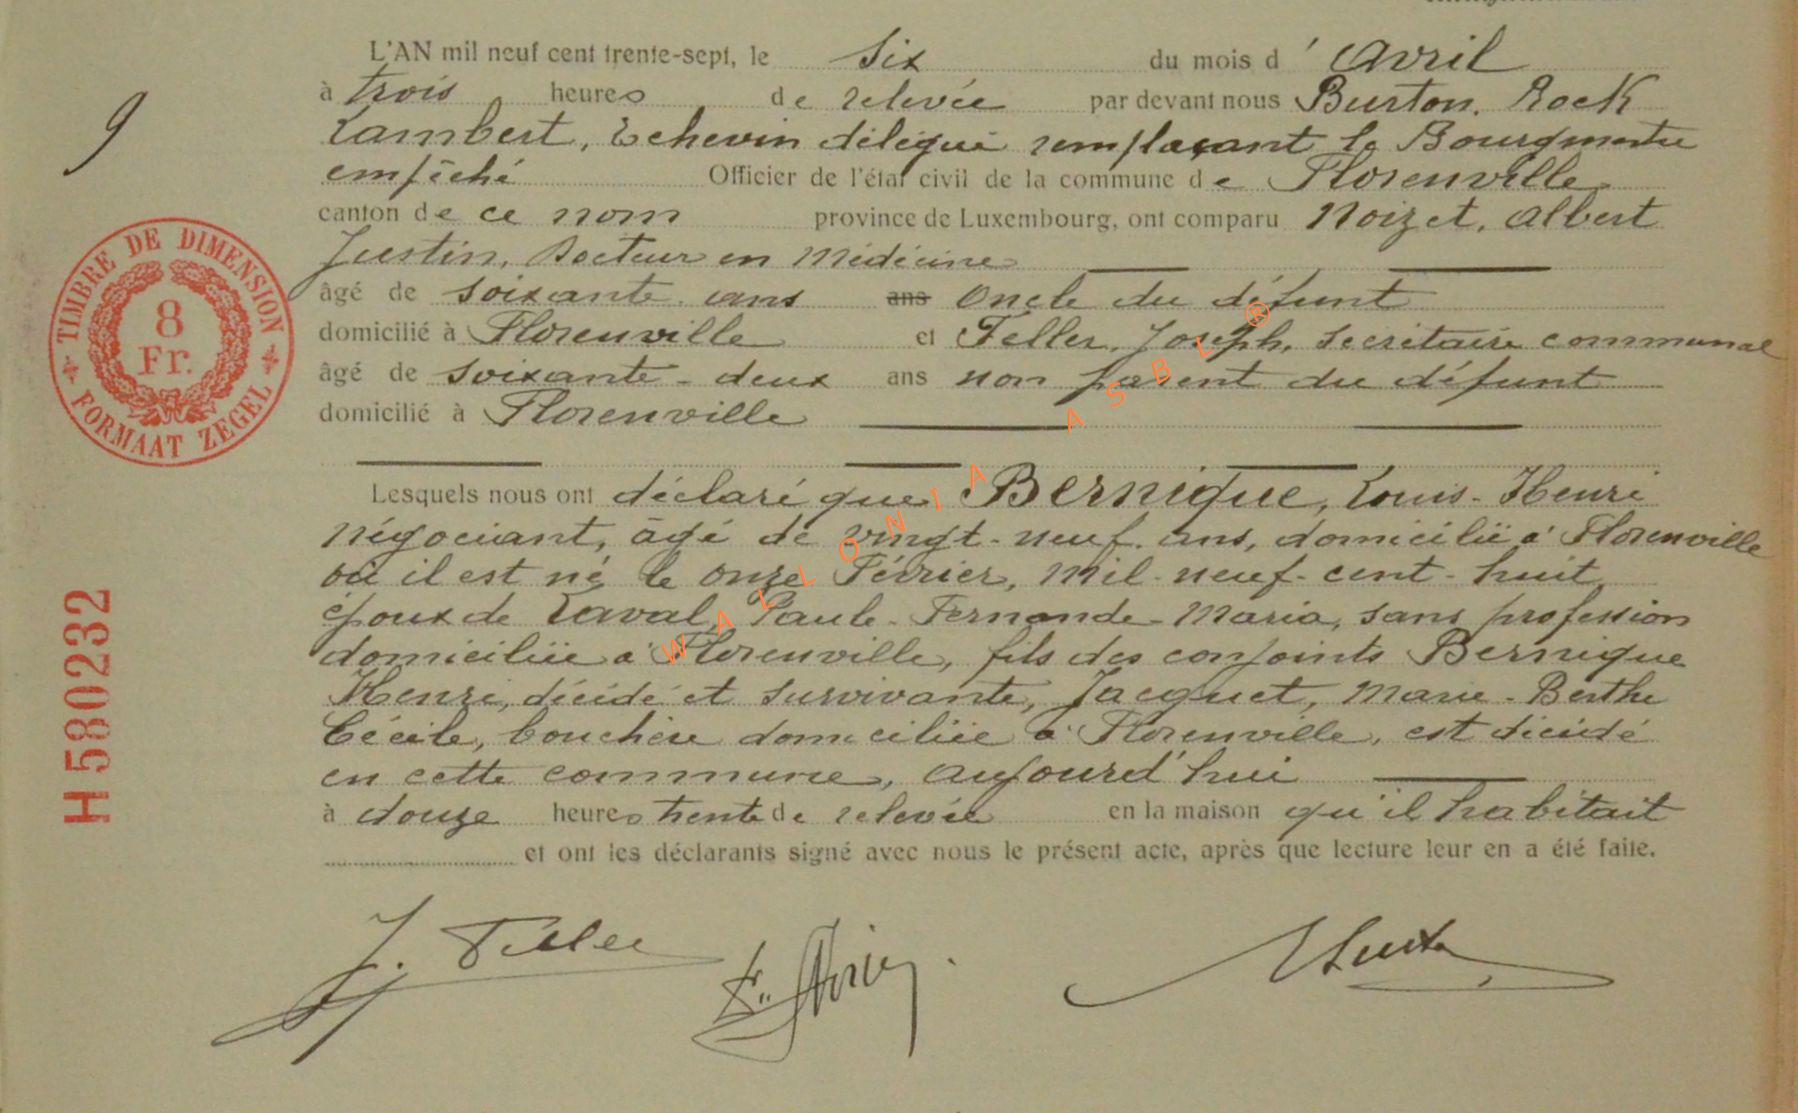 L'AN mil neuf cent trente-sept, le six du mois d' Avril
à trois heures de relevée par devant nous Burton, Rock
Lambert, Echevin délégué remplaçant le Bourgmestre
empêché Officier de l'état civil de la commune de Florenville
canton de ce nom province de Luxembourg, ont comparu Noizet, Albert
Justin, Docteur en Médécine
âgé de soixante ans ans Oncle du défunt
domicilié à Florenville et Feller, Joseph, Secrétaire communal
âgé de soixante-deux ans non parent du défunt
domicilié à Florenville
Lesquels nous ont déclaré que Bernique, Louis-Henri
négociant, âgé de vingt-neuf ans, domicilié à Florenville
où il est né le onze Février, mil-neuf-cent-huit,
époux de Laval, Paule-Fernande-Maria, sans profession
domiciliée à Florenville, fils des conjoints Bernique
Henri, décédé et survivante, Jacquet, Marie-Berthe
Cécile, bouchère domiciliée à Florenville, est décédé
en cette commune, aujourd'hui
à douze heures trente de relevée en la maison qu'il habitait
et ont les déclarants signé avec nous le présent acte, après que lecture leur en a été faite.
J. Feller
9
TIMBRE DE DIMENSION
8
Fr.
FORMAAT ZEGEL
H580232
WALLONIA ASBL®